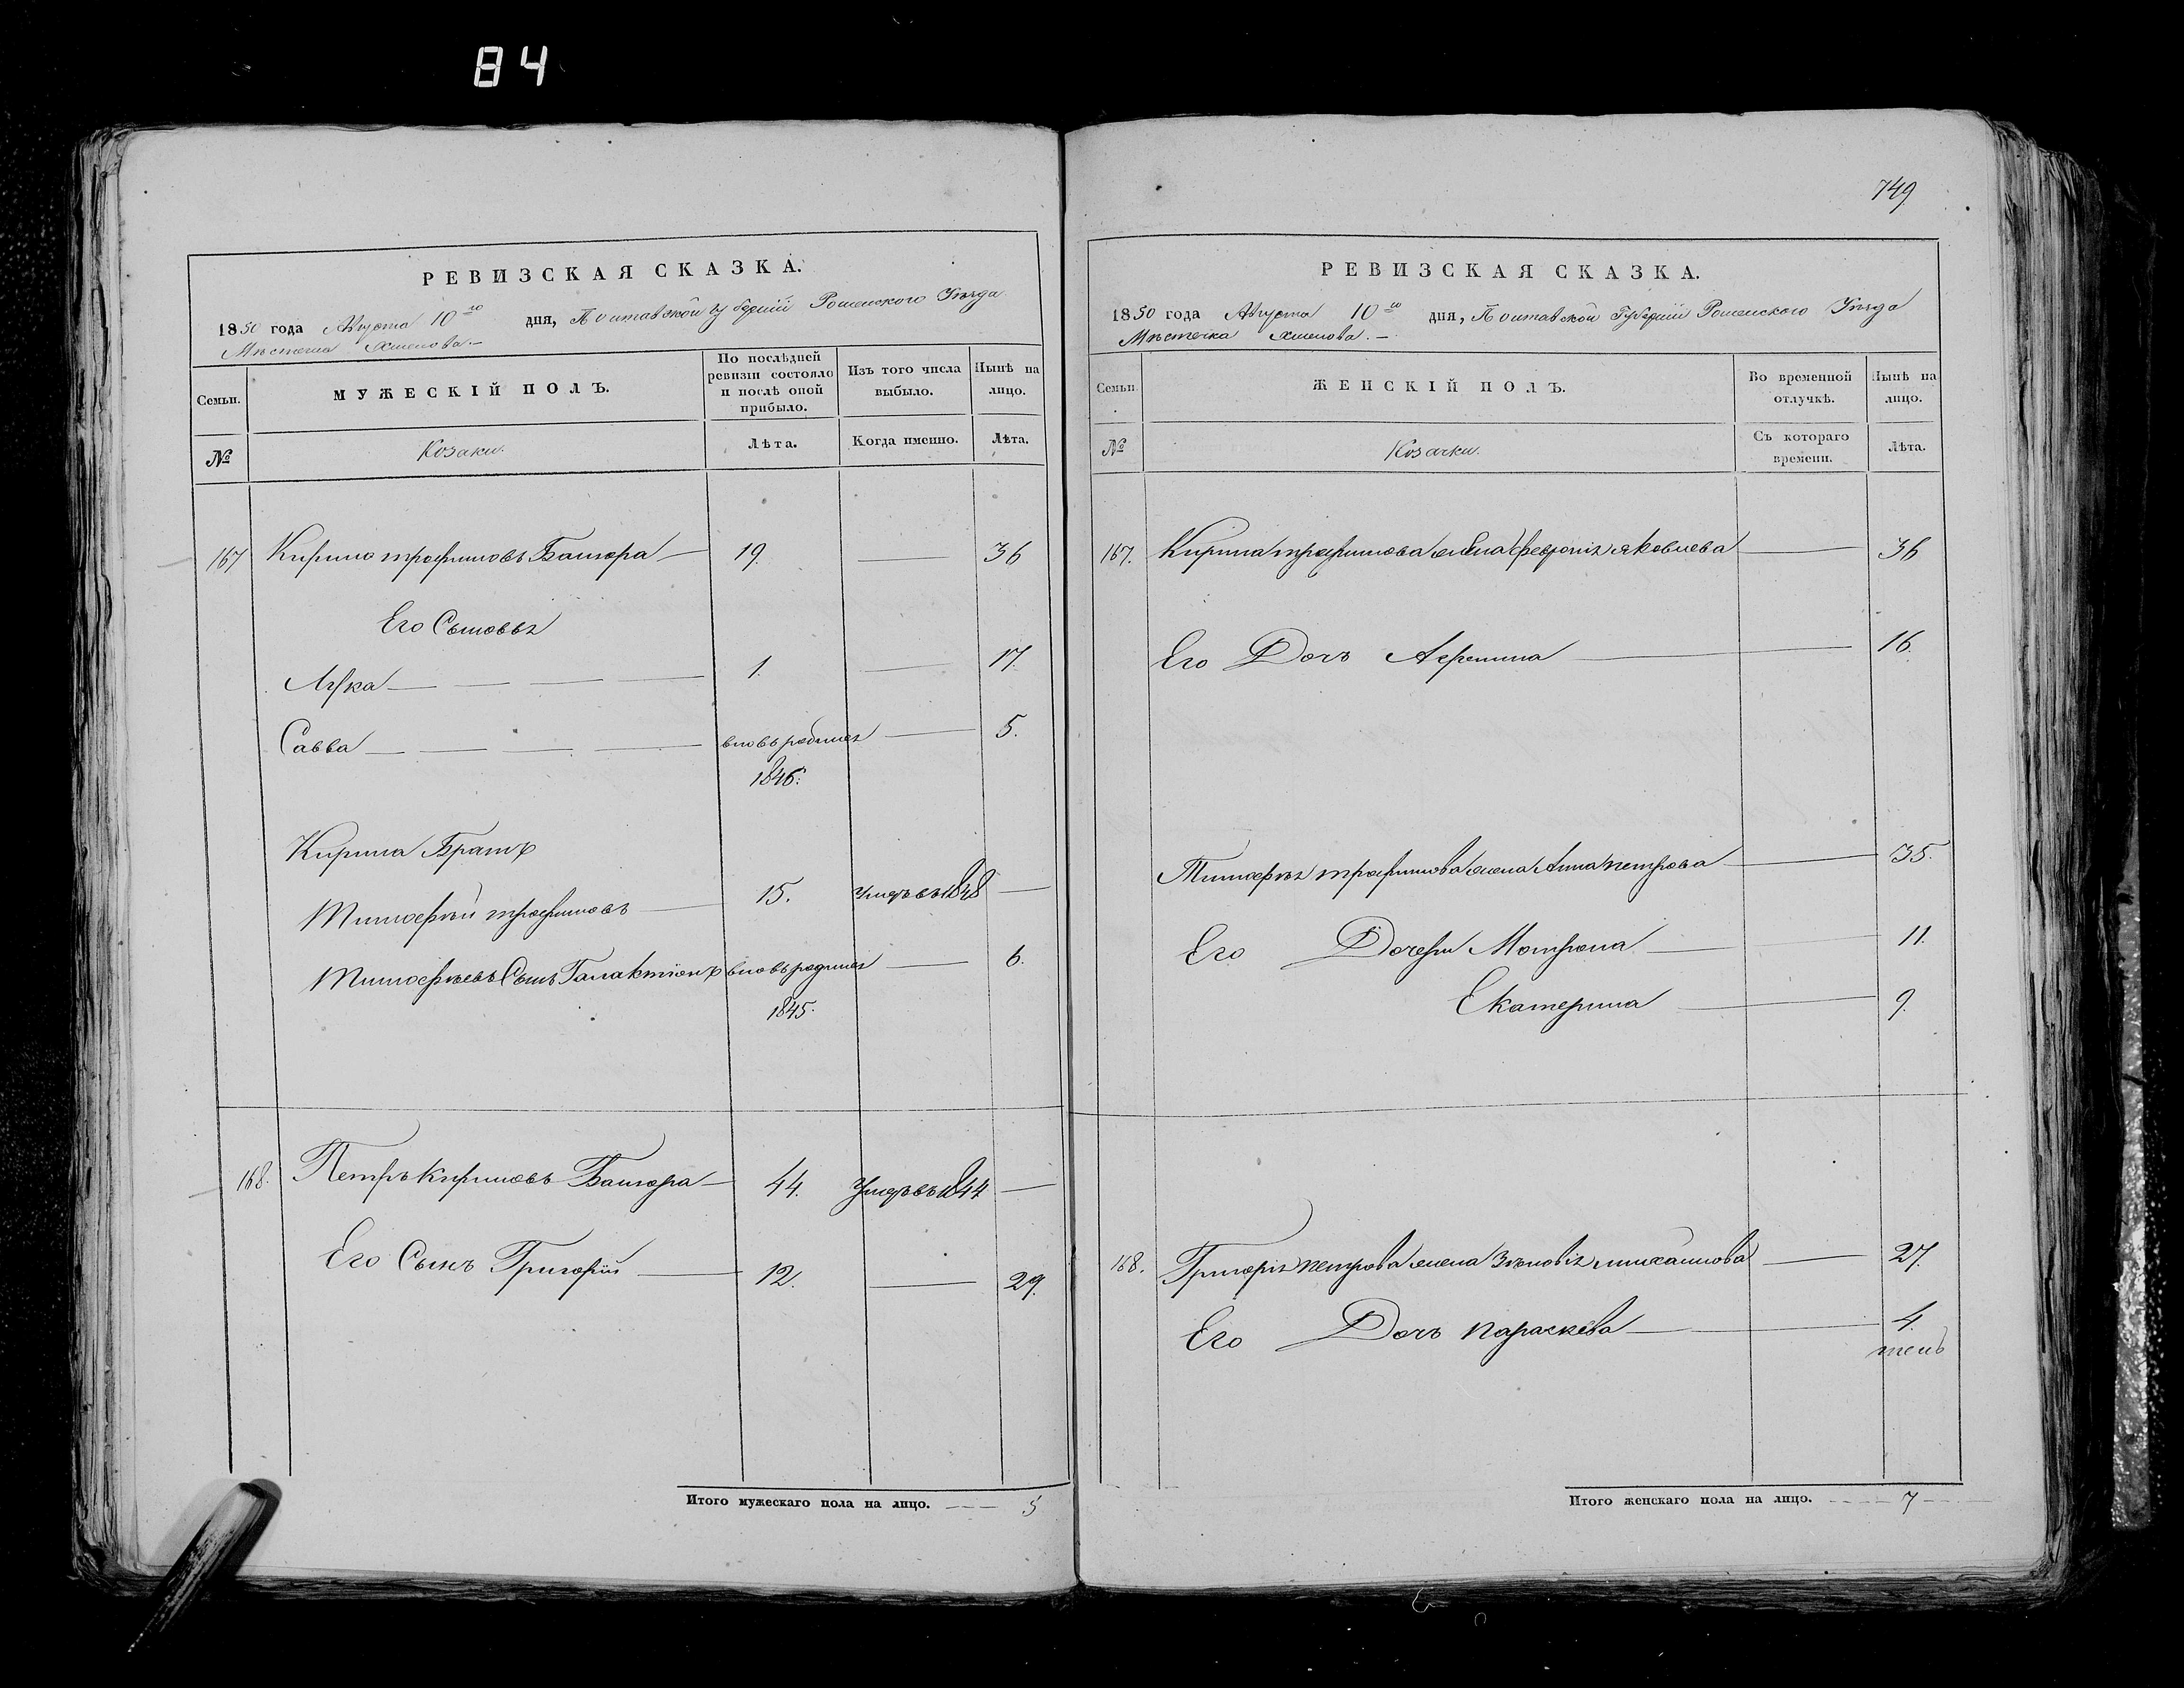 84
749
РЕВИЗСКАЯ СКАЗКА.
1850 года Августа 10го дня, Полтавской губерніи Роменского Уѣзда
Мѣстечка Хмелова.
Семьи.
МУЖЕСКІЙ ПОЛЪ.
По послѣдней ревизіи состояло и послѣ оной прибыло.
Изъ того числа выбыло.
Нынѣ на лицо.
№
Козаки.
Лѣта.
Когда именно.
Лѣта.
167 Кирило трофимовъ 19. — 36
Его Сыновья
Лука — 1. — 17.
Савва — вновь родился — 5.
1846.
Кирила Братъ
Тимофѣй трофимовъ — 15. Умеръ въ 1848 —
Тимофѣевъ Сынъ Галактіонъ вновь родился — 6.
1845.
168. Петръ Кириловъ — 44. Умеръ въ 1844 —
Его Сынъ Григорій — 12. — 29.
Итого мужескаго пола на лицо. — 5
РЕВИЗСКАЯ СКАЗКА.
1850 года Августа 10го дня, Полтавской Губерніи Роменского Уѣзда
Мѣстечка Хмелова. —
Семьи.
ЖЕНСКІЙ ПОЛЪ.
Во временной отлучкѣ.
Нынѣ на лицо.
№
Козачки.
Съ котораго времени.
Лѣта.
167. Кирила трофимова жена Февронія яковлева — 36
Его Дочь Агрепина — 16.
Тимофѣя трофимова жена Анна петрова — 35.
Его Дочери Мотрона — 11.
Екатерина — 9.
168. Григорія петрова жена Зѣновія михайлова — 27.
Его Дочь параскева — 4.
Итого женскаго пола на лицо. — 7